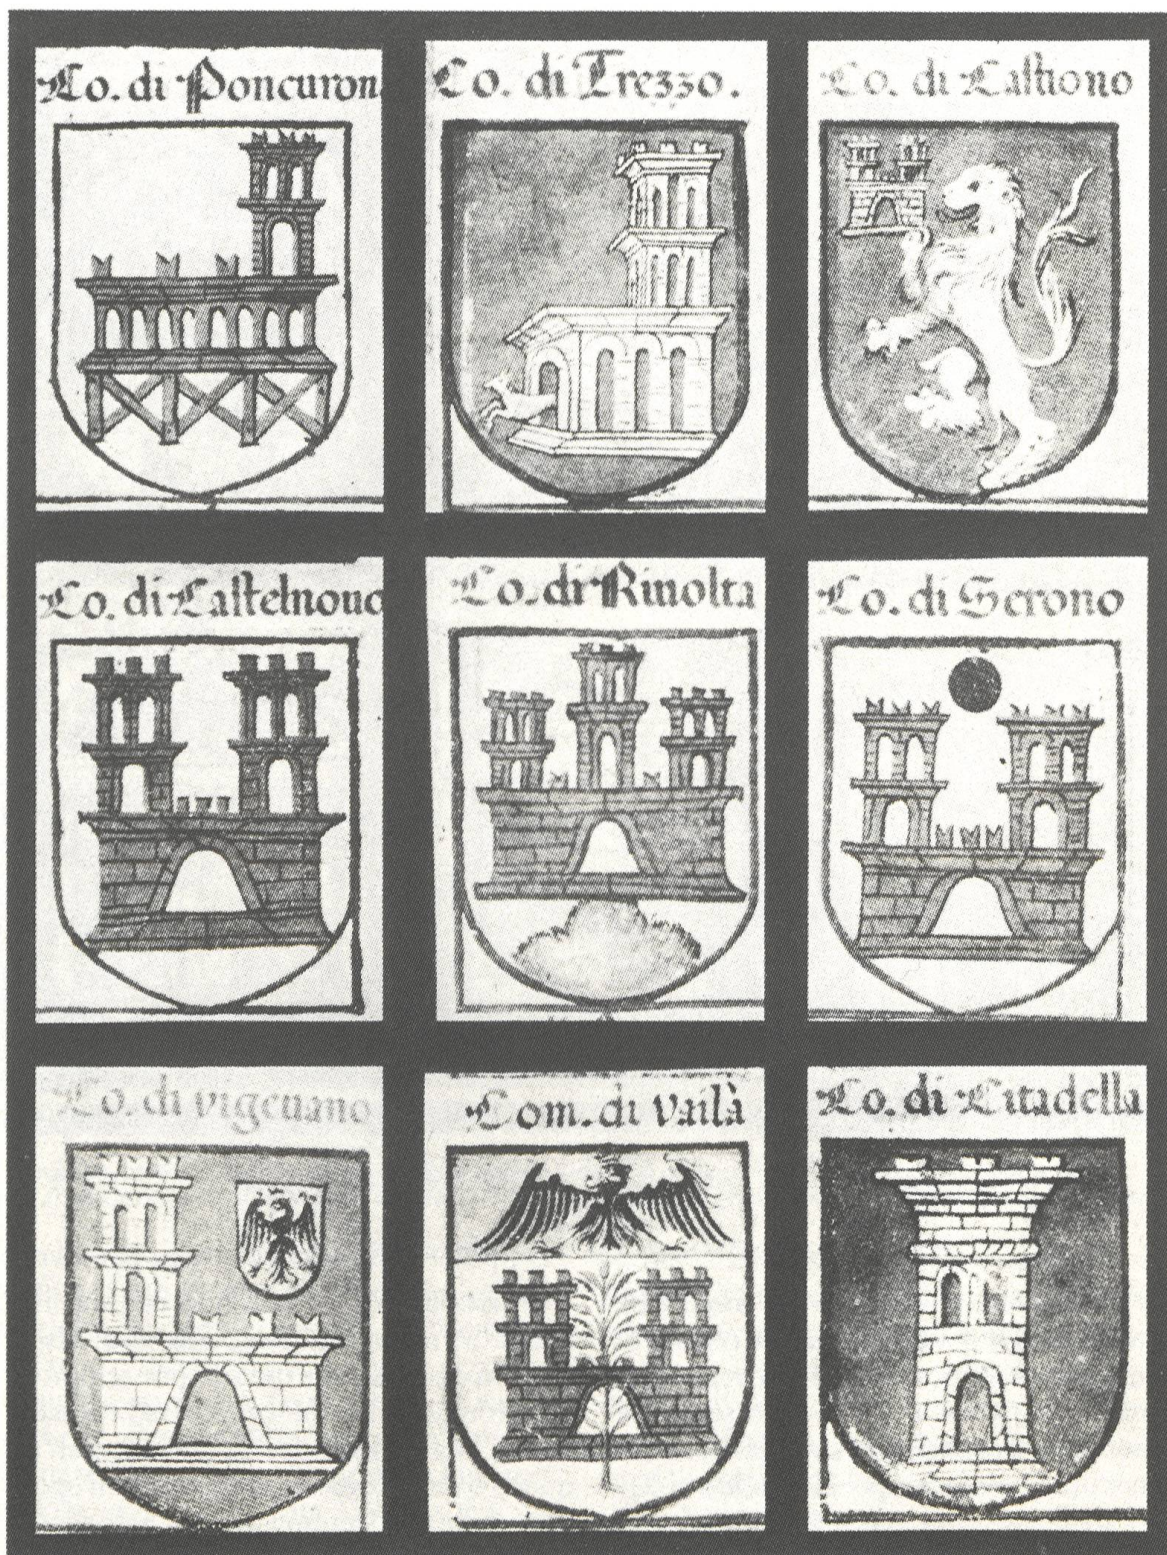 Co. di Poncuron
Co. di Trezzo.
Co. di Castiono
Co. di Castelnouo
Co. di Riuolta
Co. di Serono
Co. di vigeuano
Com. di Vailà
Co. di Citadella